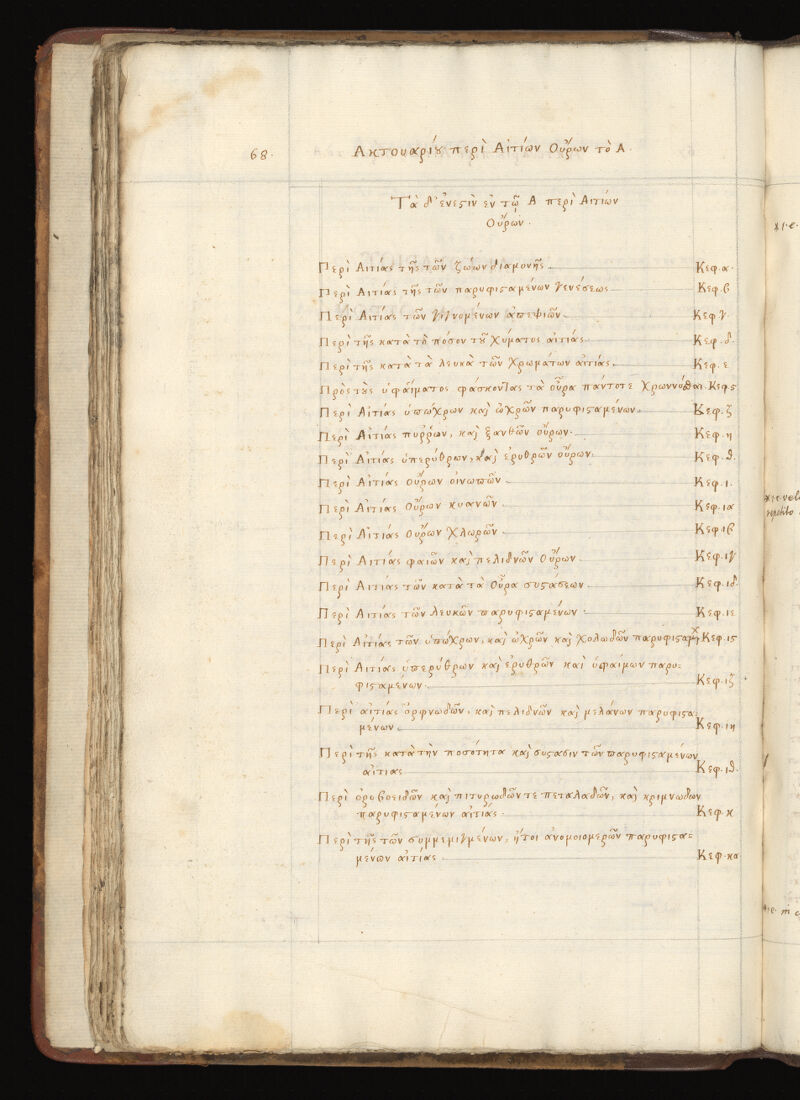 68. Ακτουαρίȣ περὶ Αἰτίων Οὔρων τὸ Α.
Τὰ δ' ἔνεϛιν ἐν τῷ Α περὶ Αιτίων
Οὔρων.
Περὶ Αιτίας τῆς τῶν ζώων διαμονῆς Κεφ. α.
Περὶ Αιτίας τῆς τῶν παρυφιϛαμένων γενέσεως Κεφ. β
Περὶ Αιτίας τῶν γιγνομένων ἀπεψιῶν Κεφ. γ.
Περὶ τῆς κατὰ τὸ πόσον τȣ͂ χύματος αἰτίας Κεφ. δ.
Περὶ τῆς κατὰ τὰ λευκὰ τῶν χρωμάτων αἰτίας. Κεφ. ε
Πρὸς τȣ̀ς ὑφαίματος φάσκονλας τὰ οὖρα πάντοτε χρωννύσθαι. Κεφ. ϛ
Περὶ Αἰτίας ὑπώχρων καὶ ὠχρῶν παρυφιϛαμένων. Κεφ. ζ
Περὶ Αἰτίας πυῤῥων, καὶ ξανθῶν οὔρων. Κεφ. η
Περὶ Αἰτίας ὑπερύθρων, καὶ ἐρυθρῶν οὔρων. Κεφ. θ.
Περὶ Αἰτίας οὔρων οἰνωπῶν Κεφ. ι.
Περὶ Αἰτίας Οὔρων κυανῶν Κεφ. ια
Περὶ Αἰτίας Οὔρων χλωρῶν Κεφ. ιβ
Περὶ Αιτίας φαιῶν καὶ πελιδνῶν Οὔρων Κεφ. ιγ
Περὶ Αιτίας τῶν κατὰ τὰ Οὖρα συϛάσεων Κεφ. ιδ.
Περὶ Αιτίας τῶν λευκῶν παρυφιϛαμένων Κεφ. ιε
Περὶ Αἰτίας τῶν ὑπώχρων, καὶ ὠχρῶν καὶ χολωδῶν Κεφ. ιϛ
Περὶ Αιτίας ὑπερύθρων καὶ ἐρυθρῶν καὶ ὑφαίμων παρυ:
φιϛαμένων. Κεφ. ιζ
Περὶ αἰτίας ὀρφνωδῶν, καὶ πελιδνῶν καὶ μελάνων παρυφιϛα:
μένων Κεφ. ιη
Περὶ τῆς κατὰ τὴν ποσότητα καὶ σύϛασιν τῶν παρυφιϛαμένων
αἰτίας Κεφ. ιθ.
Περὶ ὀροβοειδῶν καὶ πιτυρωδῶν τε πεταλαδῶν, καὶ κριμνωδων
παρυφιϛαμένων αἰτίας. Κεφ. κ
Περὶ τῆς τῶν συμμεμιγμένων, ἤτοι ἀνομοιομερῶν παρυφιϛα:
μένων αἰτίας Κεφ. κα